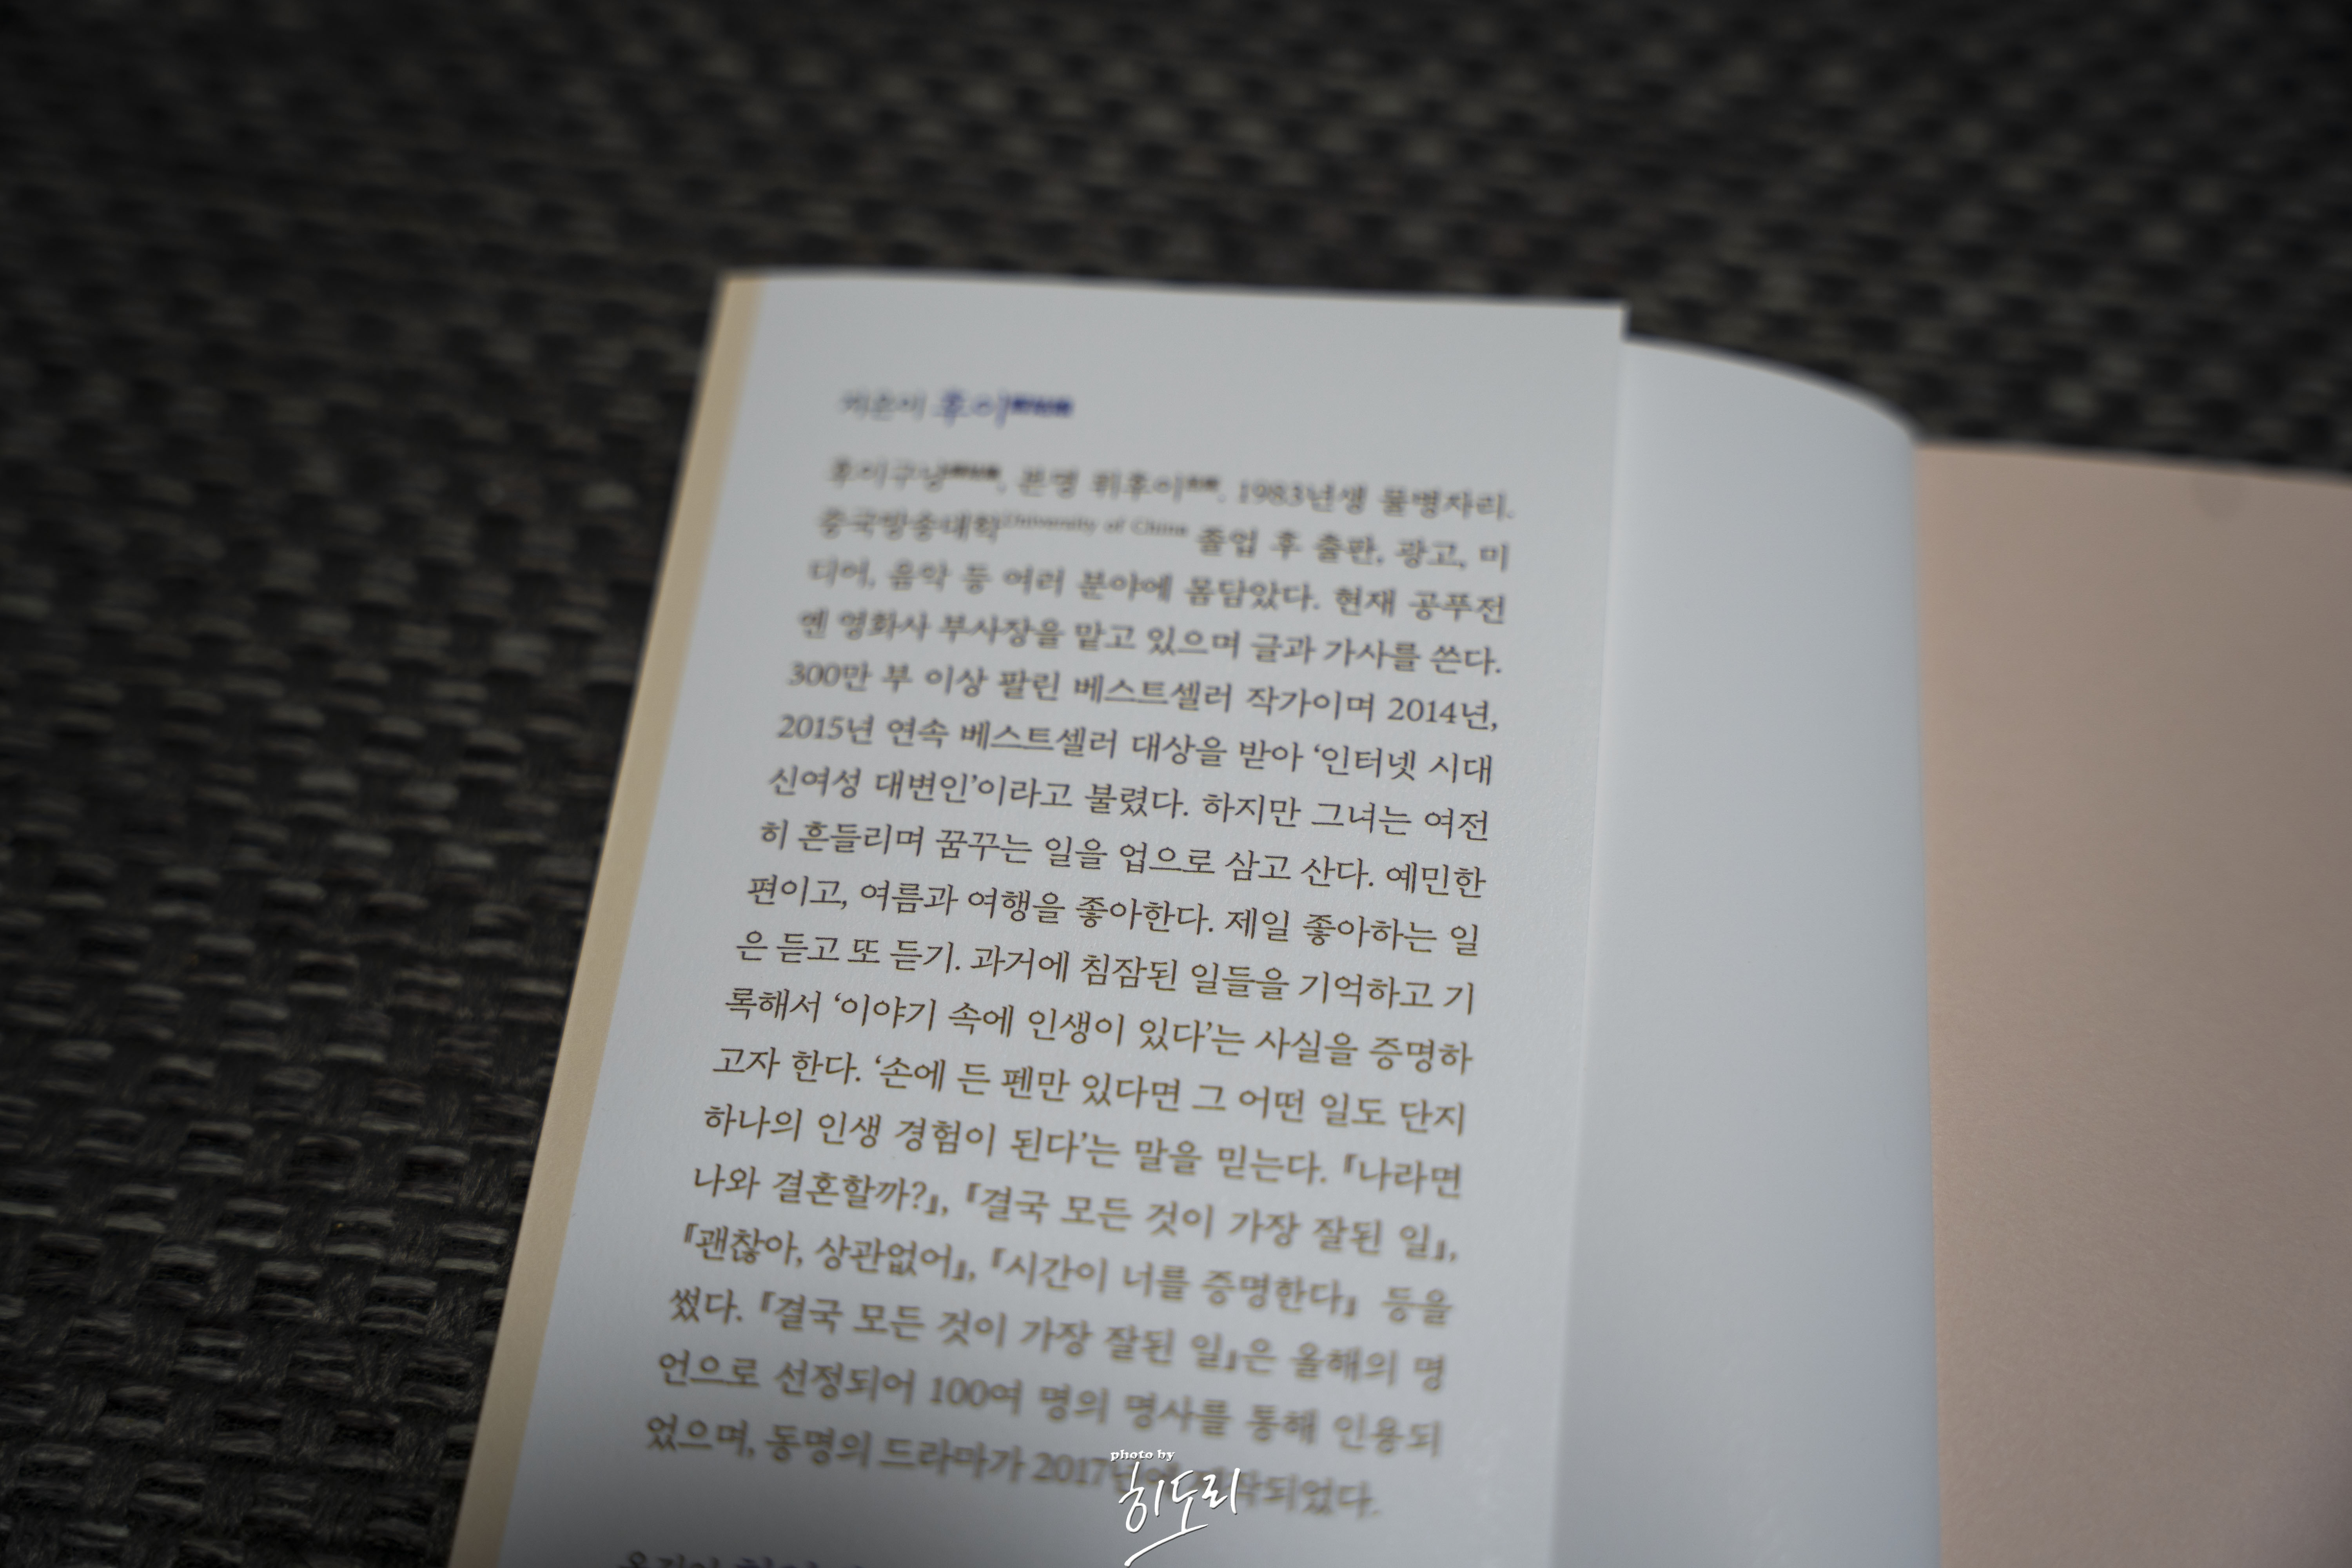 지은이 후이
후이구냥, 본명 뤼후이, 1983년생 물병자리.
중국방송대학University of China 졸업 후 출판, 광고, 미
디어, 음악 등 여러 분야에 몸담았다. 현재 공푸전
옌 영화사 부사장을 맡고 있으며 글과 가사를 쓴다.
300만 부 이상 팔린 베스트셀러 작가이며 2014년,
2015년 연속 베스트셀러 대상을 받아 ‘인터넷 시대
신여성 대변인’이라고 불렸다. 하지만 그녀는 여전
히 흔들리며 꿈꾸는 일을 업으로 삼고 산다. 예민한
편이고, 여름과 여행을 좋아한다. 제일 좋아하는 일
은 듣고 또 듣기. 과거에 침잠된 일들을 기억하고 기
록해서 ‘이야기 속에 인생이 있다’는 사실을 증명하
고자 한다. ‘손에 든 펜만 있다면 그 어떤 일도 단지
하나의 인생 경험이 된다’는 말을 믿는다. 『나라면
나와 결혼할까?』, 『결국 모든 것이 가장 잘된 일』,
『괜찮아, 상관없어』, 『시간이 너를 증명한다』 등을
썼다. 『결국 모든 것이 가장 잘된 일』은 올해의 명
언으로 선정되어 100여 명의 명사를 통해 인용되
었으며, 동명의 드라마가
photo by
히도리